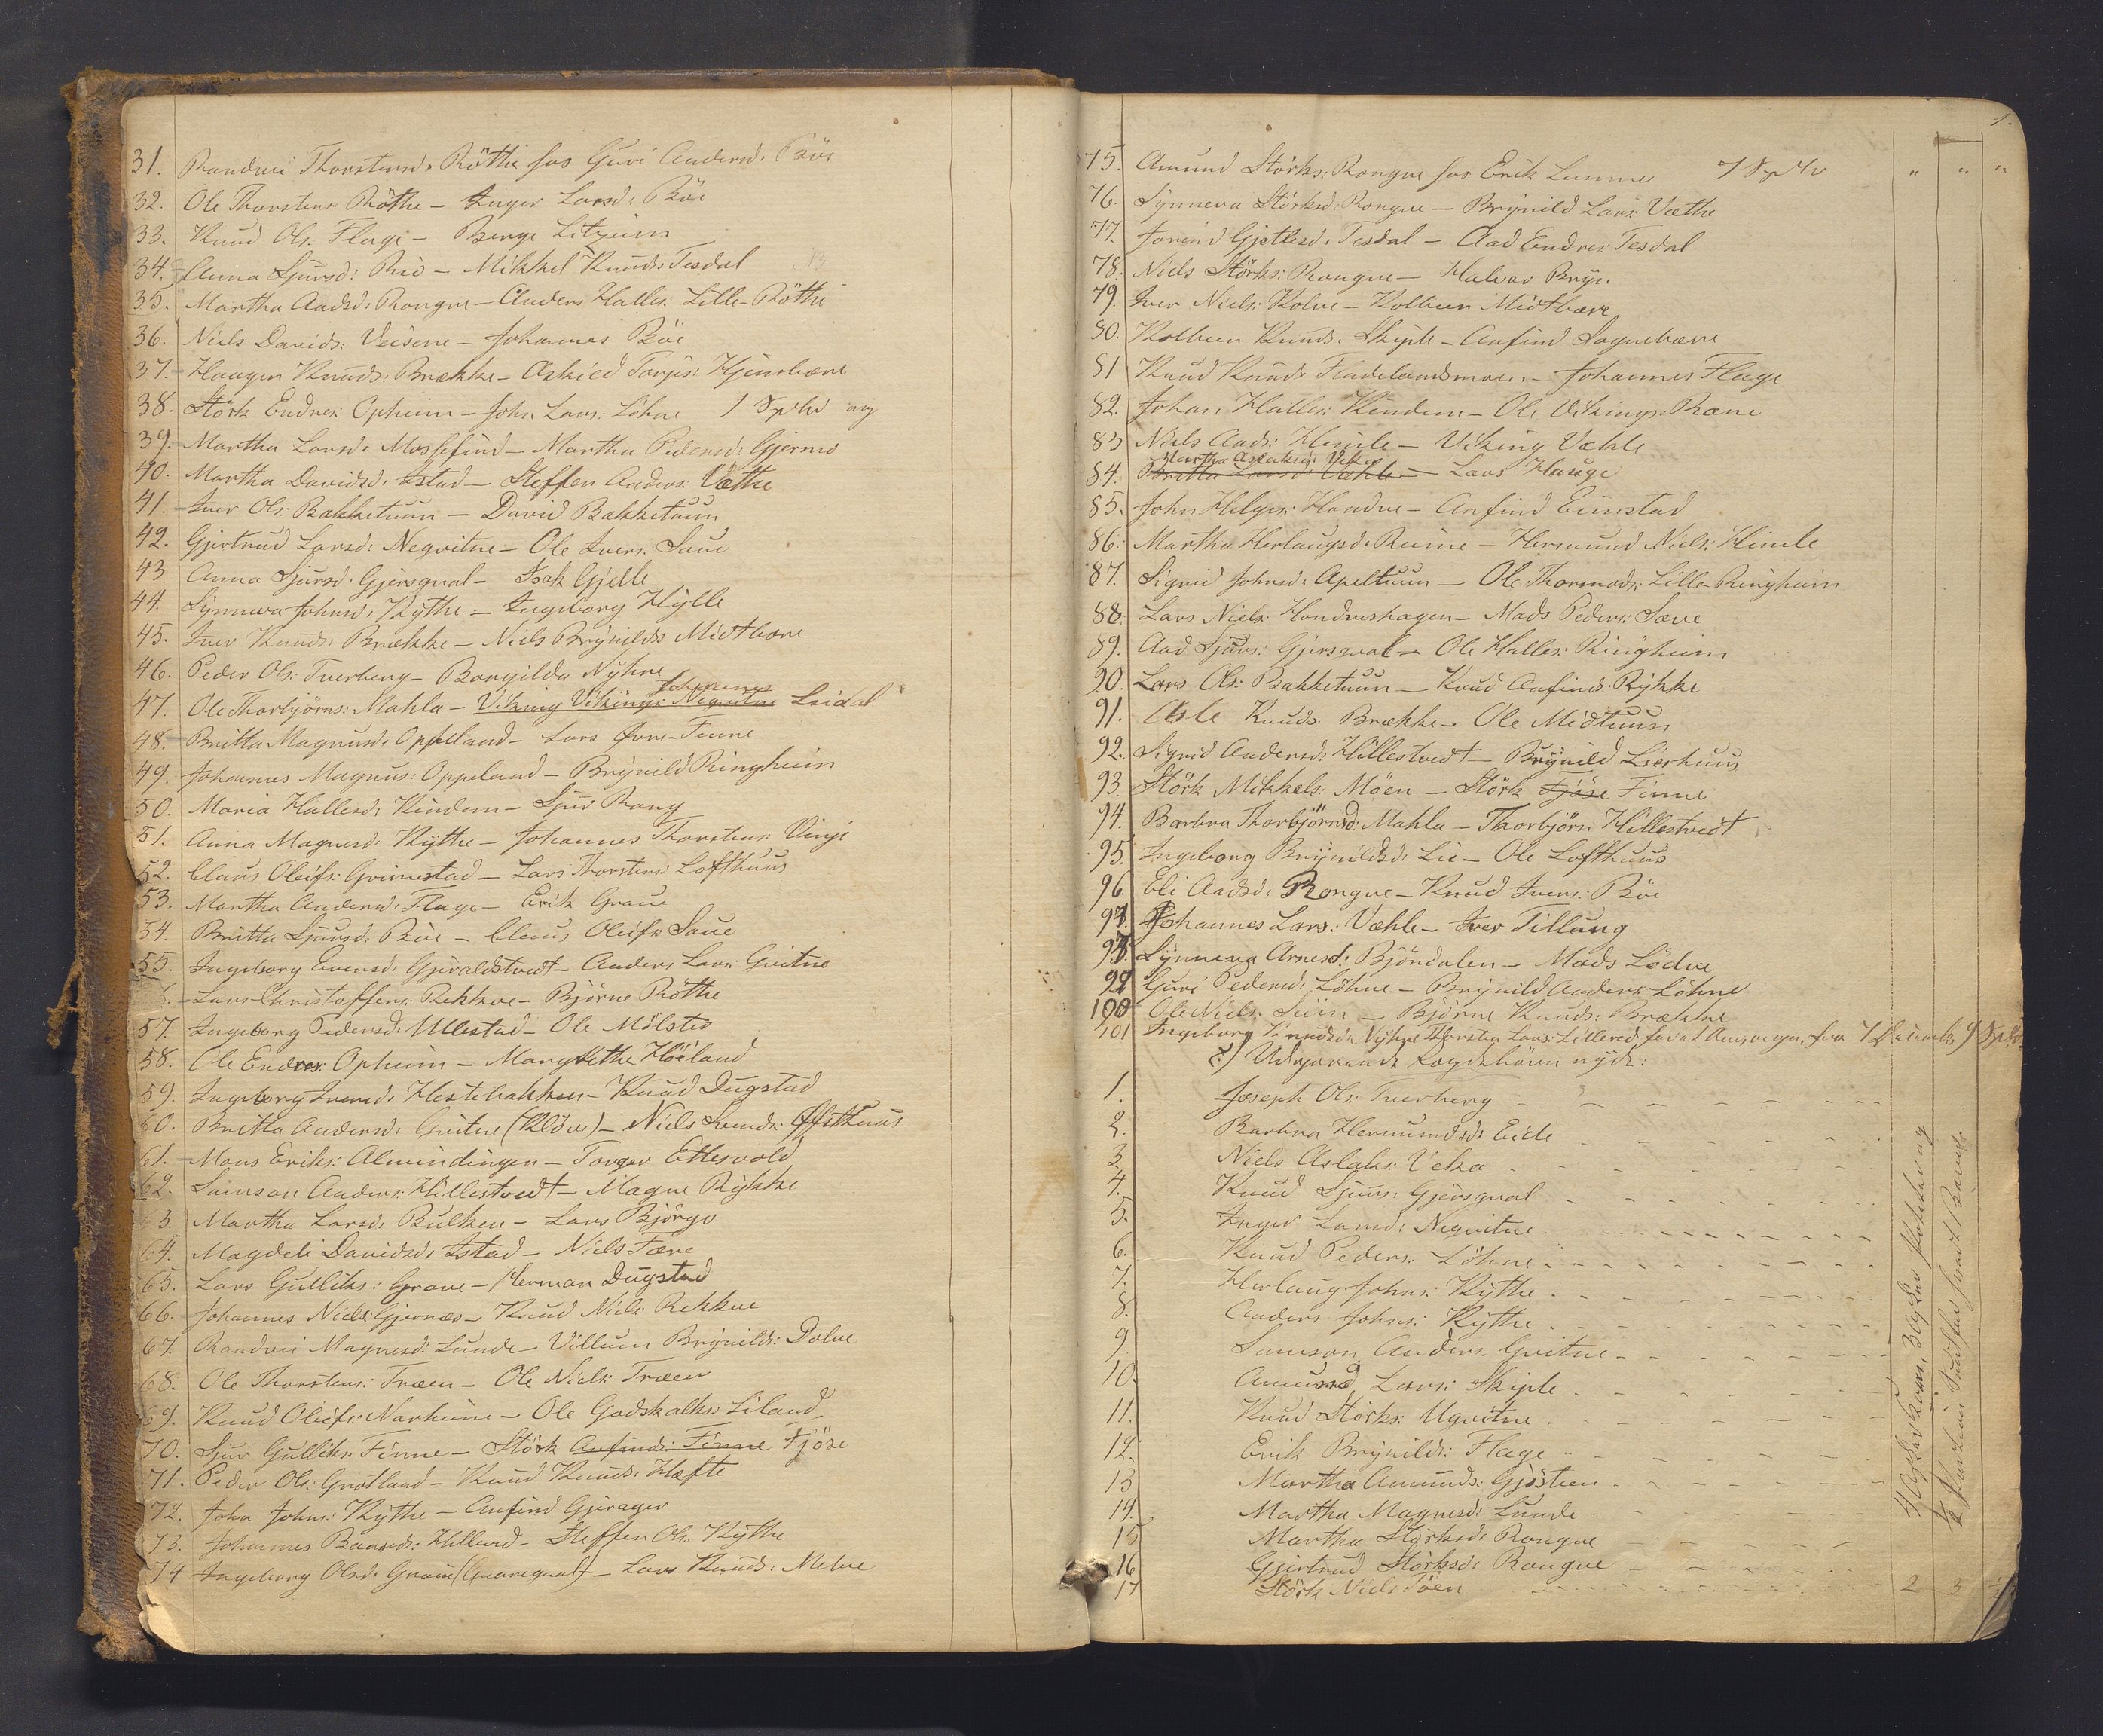 31. Randvei Thorstensd: Röthe hos Guri Andersd: Böe
32. Ole Thorstens: Röthe – Inger Larsd: Böe
33. Knud Ols: Flage – Berge Litzeim
34. Anna Sjursd: Rio – Mikkel Knuds: Tesdal
35. Martha Aadsd: Rongve – Anders Halles: Lille-Röthe
36. Niels Davids: Veisene – Johannes Böe
37. Haagen Knuds: Brække – Askied Torjis: Hjimbære
38. Störk Endres: Opheim – John Lars: Löhne 1 Spdlr
39. Martha Larsd: Mossefind – Martha Pedersd: Gjernes
40. Martha Davidsd: Istad – Steffen Anders: Væthe
41. Iver Ols: Bakketuun – David Bakketuun
42. Gjertrud Larsd: Neqvitne – Ole Ivers: Saue
43. Anna Sjursd: Gjersqval – Isak Gjelle
44. Synneva Johnsd: Kythe – Ingeborg Hylle
45. Iver Knuds: Brække – Niels Brynilds: Midtbære
46. Peder Ols: Tverberg – Borgilda Nyhre
Johannes
47. Ole Thorbjörns: Mahla – Viking Vikings: Neqvitne Leidal
48. Britta Magnusd: Oppeland – Lars Övre-Finne
49. Johannes Magnus: Oppeland – Brynild Ringheim
50. Maria Hallesd: Kindem – Sjur Rong
51. Anna Magnesd: Kythe – Johannes Thorstens: Vinje
52. Claus Oleifs: Grimestad – Lars Thorstens: Lofthuus
53. Martha Andersd: Flage – Erik Graue
54. Britta Sjursd: Böe – Claus Oleifs: Saue
55. Ingeborg Evensd: Gjeraldstvedt – Anders Lars: Gvitne
Lars Christoffers: Rekkve – Björne Röthe
57. Ingeborg Pedersd: Ullestad – Ole Mölster
58. Ole Endres: Opheim – Margrethe Höeland
59. Ingeborg Iversd: Hestebakken – Knud Dugstad
60. Britta Andersd: Gvitne (Klöve) – Niels Svends: Östhuus
61. Mons Eriks: Almindingen – Torger Ettesvold
62. Samson Anders: Hillestvedt – Magne Rykke
63. Martha Larsd: Bulken – Lars Björgo
64. Magdeli Davidsd: Istad – Niels Tære
65. Lars Gulliks: Grove – Herman Dugstad
66. Johannes Niels: Gjernæs – Knud Niels: Rekkve
67. Randvei Magnesd: Lunde – Villum Brynilds: Dolve
68. Ole Thorstens: Træen – Ole Niels: Træen
69. Knud Oleifs: Norheim – Ole Godskalks: Liland
70. Sjur Gulliks: Finne – Störk Anfinds: Finne Tjöse
71. Peder Ols: Grotland – Knud Knuds: Hæfte
72. John Johns: Kythe – Anfind Gjerager
73. Johannes Baards: Hillerd – Steffen Ols: Kythe
74 Ingeborg Olsd: Graue – Lars Knuds: Melve
1.
75. Amund Störks: Rongve hos Erik Lemme 7 Spdlr " " "
76. Synneva Störksd: Rongve – Brynild Lars: Væthe
77. Jorend Gjetlesd: Tesdal – Aad Endres: Tesdal
78. Niels Störks: Rongve – Halvor Bryn
79. Iver Niels: Kolve – Kolbein Midtbære
80. Kolbein Knuds: Skiple – Anfind Sognebære
81 Knud Knuds: – Johannes Flage
82. Johan Halles: Kindem – Ole Vikings: Ræne
83 Niels Aads: Himle – Viking Væhle
Martha Aslaksd: Veka
84. Britta Larsd: Væhle – Lars Hauge
85. John Helges: Hondve – Anfind Eimstad
86. Martha Herlaugsd: Reime – Hermund Niels: Himle
87. Sigrid Johnsd: Apeltuun – Ole Thormods: Lille Ringheim
88. Lars Niels: Hondveshagen – Mads Peders: Sæve
89. Aad Sjurs: Gjersqval – Ole Halles: Ringheim
90. Lars Ols: Bakketuun – Knud Anfinds: Rykke
91. Asle Knuds: Brække – Ole Midtuun
92. Sigrid Andersd: Hillestvedt – Brynild Lierhuus
93. Störk Mikkels: Möen – Störk Tjöse Finne
94. Barbra Thorbjörnsd: Mahla – Thorbjörn Hillestvedt
95. Ingeborg Brynildsd: Lie – Ole Lofthuus
96. Eli Aadsd: Rongve – Knud Ivers: Böe
97. Johannes Lars: Væhle – Iver Tillung
98. Synneva Arnesd: Björndalen – Mads Lödve
99. Guri Pedersd: Löhne – Brynild Anders: Löhne
100 Ole Niels: – Björne Knuds: Brække
101 Ingeborg Knudsd: Nyhre Thorsten Lars: Lillered
Udgaaende Lægdsbörn nyde:
1. Joseph Ols: Tverberg
2. Barbra Hermundsd: Eide
3. Niels Aslaks: Veka
4. Knud Sjurs: Gjersqval
5. Inger Larsd: Neqvitne
6. Knud Peders: Löhne
7. Herlaug Johns: Kythe
8. Anders Johns: Kythe
9. Samson Anders: Gvitne
10. Amund Lars: Skiple
11. Knud Störks: Ugvitne
12. Erik Brynilds: Flage
13 Martha Amunds: Gjöstein
14. Martha Magnesd: Lunde
15 Martha Störksd: Rongve
16 Gjertrud Störksd: Rongve
17 Störk Niels: Töen 2 3